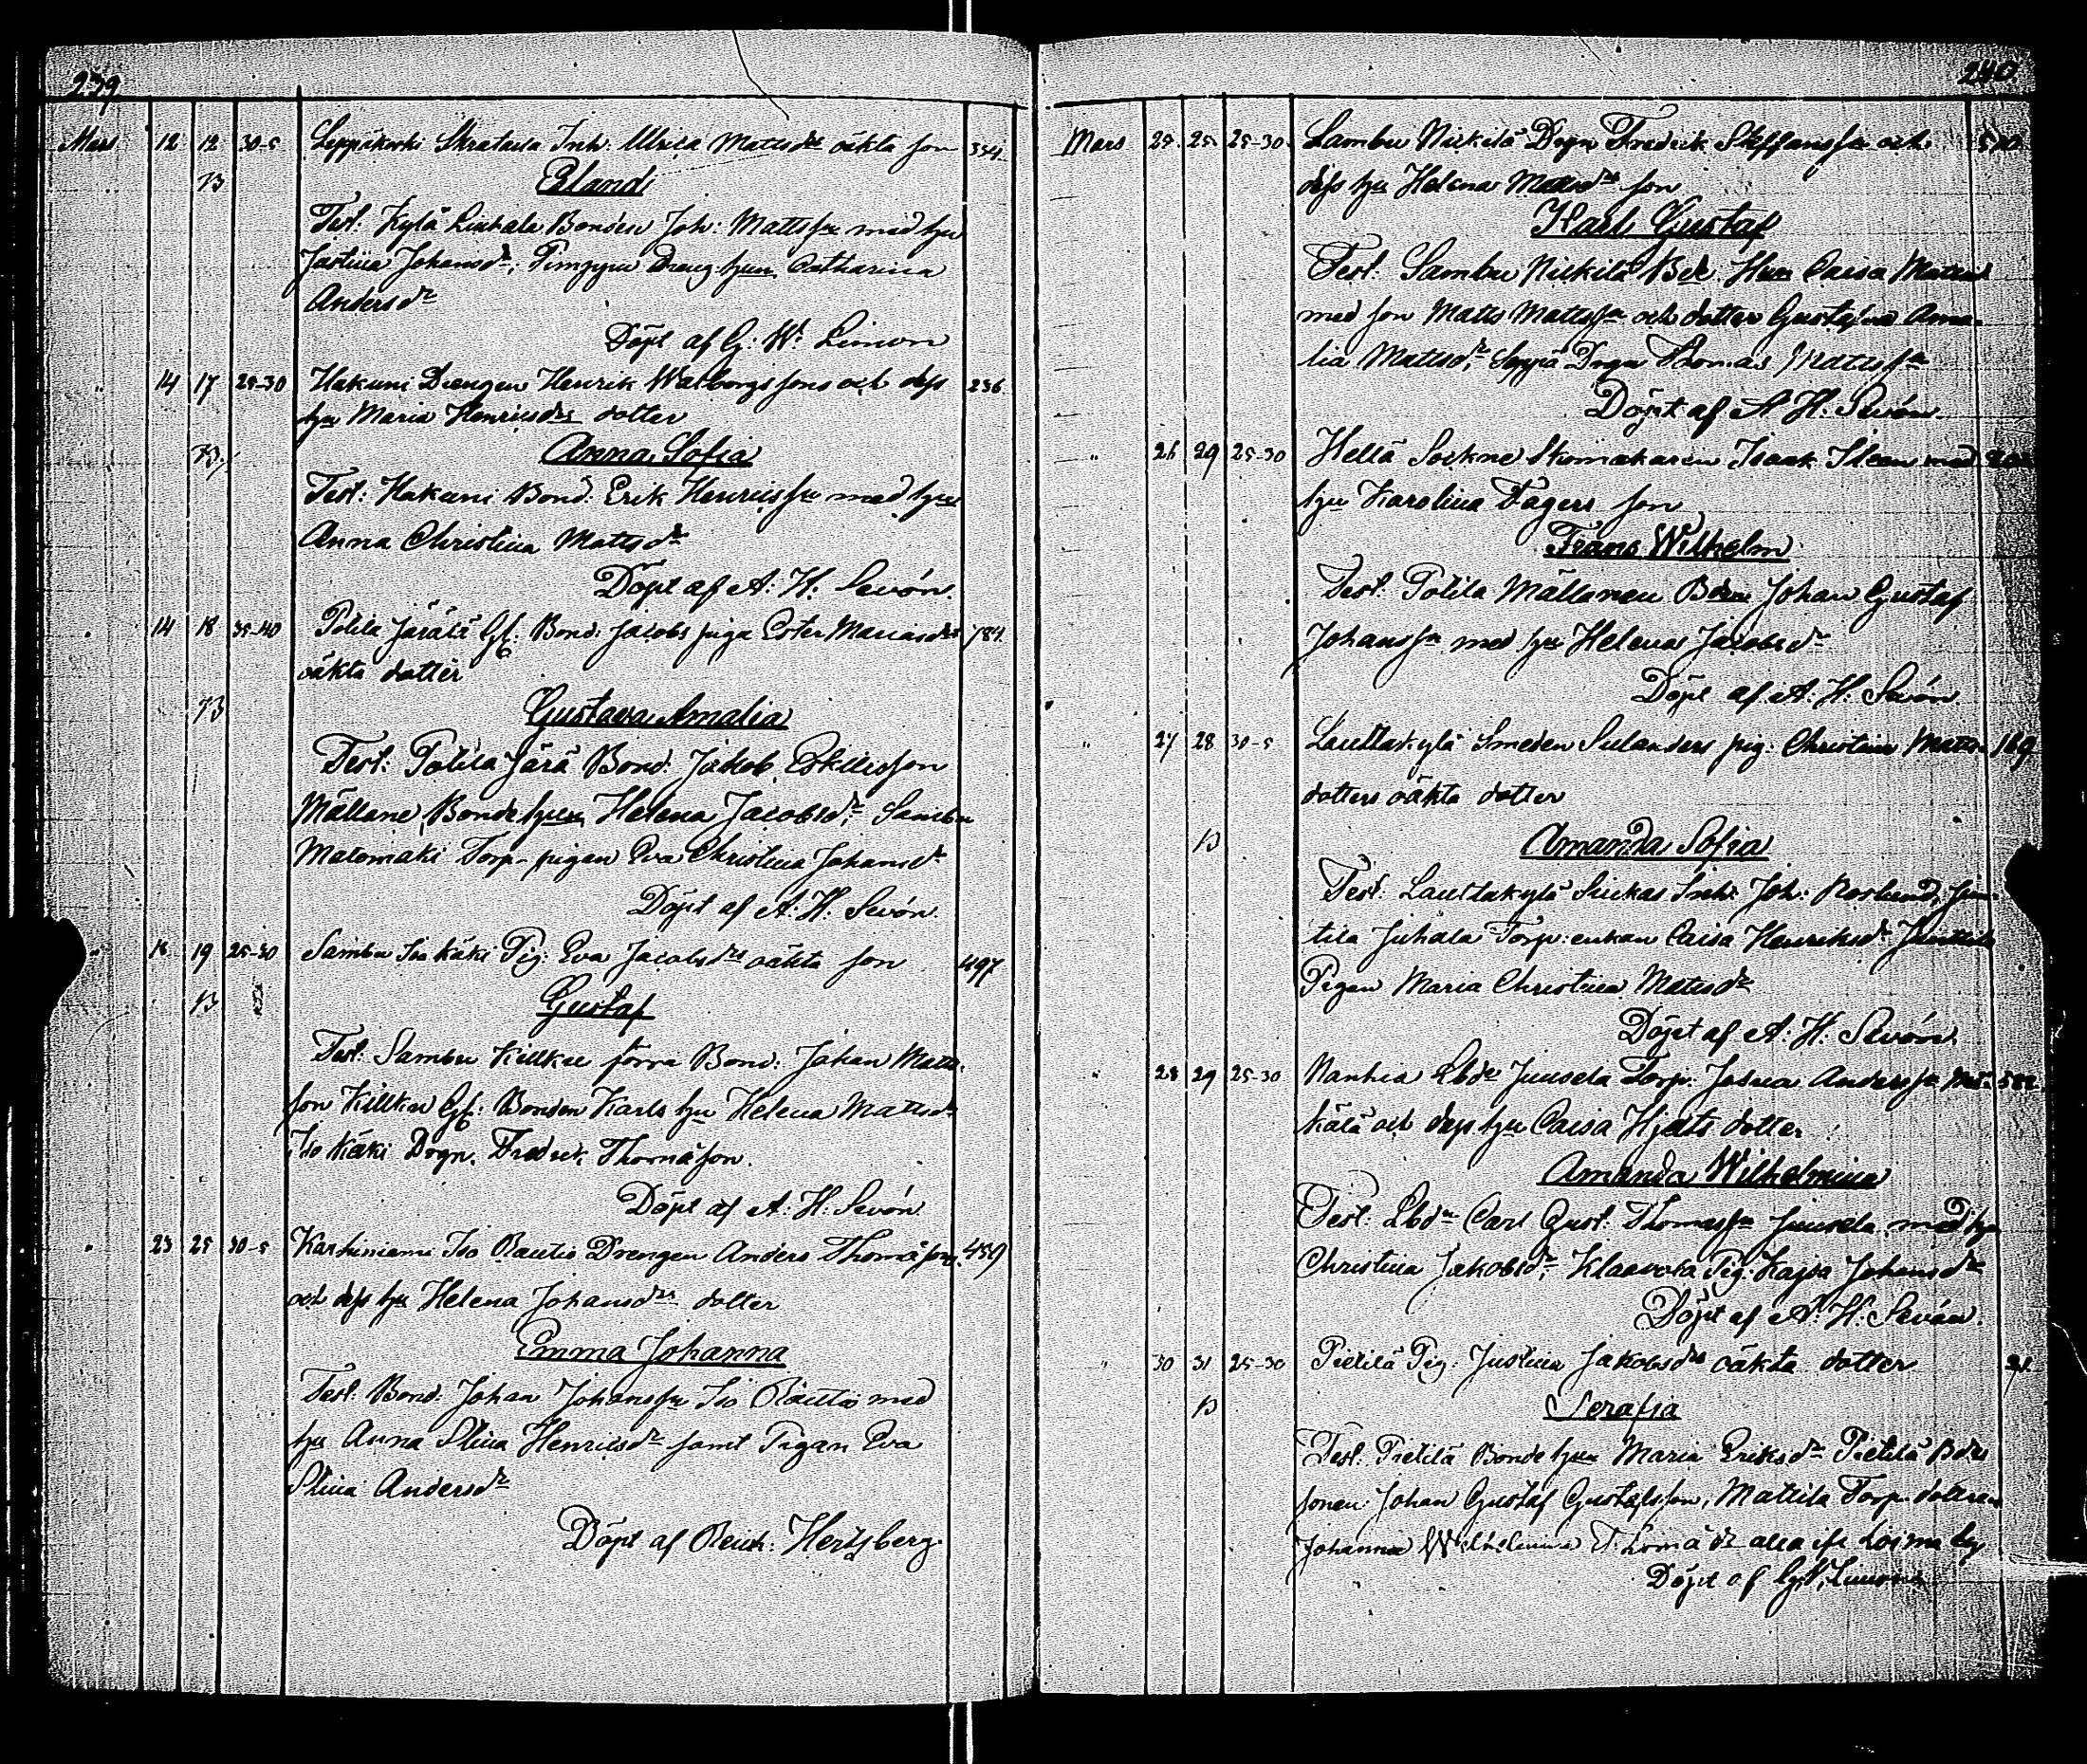 239
Mars 12 12 30-5 Leppäkoski Inh: Ulrica Mattsdrs oäkta son 334
B Erland
Test: Kylä Liuhala Bonden Joh: Mattsson med hu
Justina Johansdr, Dreng hun Catharina
Andersdr
Döpt af G: W: Limon
" 14 17 25-30 Hakuni Drengen Henrik Walborgssons och dess 236
hu Maria Henricsdrs dotter
B. Anna Sofia
Test: Hakuni Bond: Erik Henricssn med hu
Anna Christina Mattsdr
Döpt af A: H: Sevón.
" 14 18 35-40 Potila Järälä Gf: Bond: Jacobs piga Ester Mariasdrs 784
oäkta dotter
B Gustava Amalia
Test: Potila Järä Bond: Jakob Eskilsson
Mällane Bondehun Helena Jacobsdr, Sambu
Matomäki Torp-pigan Eva Christina Johansdr
Döpt af A: H: Sevón.
" 18 19 25-30 Sambu Iso Käki Pig: Eva Jacobsdrs oäkta son 497
B Gustaf
Test: Sambu Killku förra Bond: Johan Matts
son Killku Gf: Bonden Karls hu Helena Mattsdr
Iso Käki Drgn. Fredrik Thomäson.
Döpt af A: H: Sevón
" 23 25 30-5 Karhiniemi Iso Rautio Drengen Anders Thomäsons 459
och dess hu Helena Johansdrs dotter
Emma Johanna
Test: Bond: Johan Johansson Iso Rautio med
hu Anna Stina Henricsdr samt Pigan Eva
Stina Andersdr
Döpt af Hertzberg.
240
Mars 25. 25 25-30. Sambu Nickilä Drgn Fredrik Steffanssn och
dess hu Helena Mattsdrs son
Karl Gustaf
Test: Sambu Nickilä Bde. Hun Caisa Mattsd
med son Matts Mattssn och dotter Gustafva Ama-
lia Mattsdr, Seppä Drgn Thomas Mattssn
Döpt af A H: Sevón.
" 26 29 25-30 Hellä Sockne Skomakaren Isaak med
hu Karolina Fagers son
Frans Wilhelm
Test: Potila Mällanen Bden Johan Gustaf
Johanssn med hu Helena Jacobsdr
Döpt af A: H: Sevón.
" 27 28 30-5 Lauttakylä Smeden Sulanders pig: Christina Matts- 169
dotters oäkta dotter
B Amanda Sofia
Test: Lauttakylä Suckas Inh: Joh: Roslund, Jun-
tila Juhala Torp: enkan Caisa Henriksdr
Pigan Maria Christina Mattsdr
Döpt af A: H: Sevón.
" 28 29 25-30 Nanhia Lbdr Junsela Torp: Josua Anderssn Mä-
kälä och dess hu Caisa Hjelts dotter
Amanda Wilhelmina
Test: Lbdr Carl Gust: Thomassn Junsela med hu
Christina Jakobsdr, Klaavola Pig: Kajsa Johansdr
Döpt af A: H: Sevón.
" 30 31 25-30 Pietilä Pig: Justina Jakobsdrs oäkta dotter 91
B Serafia
Test: Pietilä Bonde hun Maria Eriksdr Pietilä Bde
sonen Johan Gustaf Gustafsson, Mattila Torp. dottren
Johanna Wilhelmina Thomädr alla ifr Loima by
Döpt af G. W. Limon